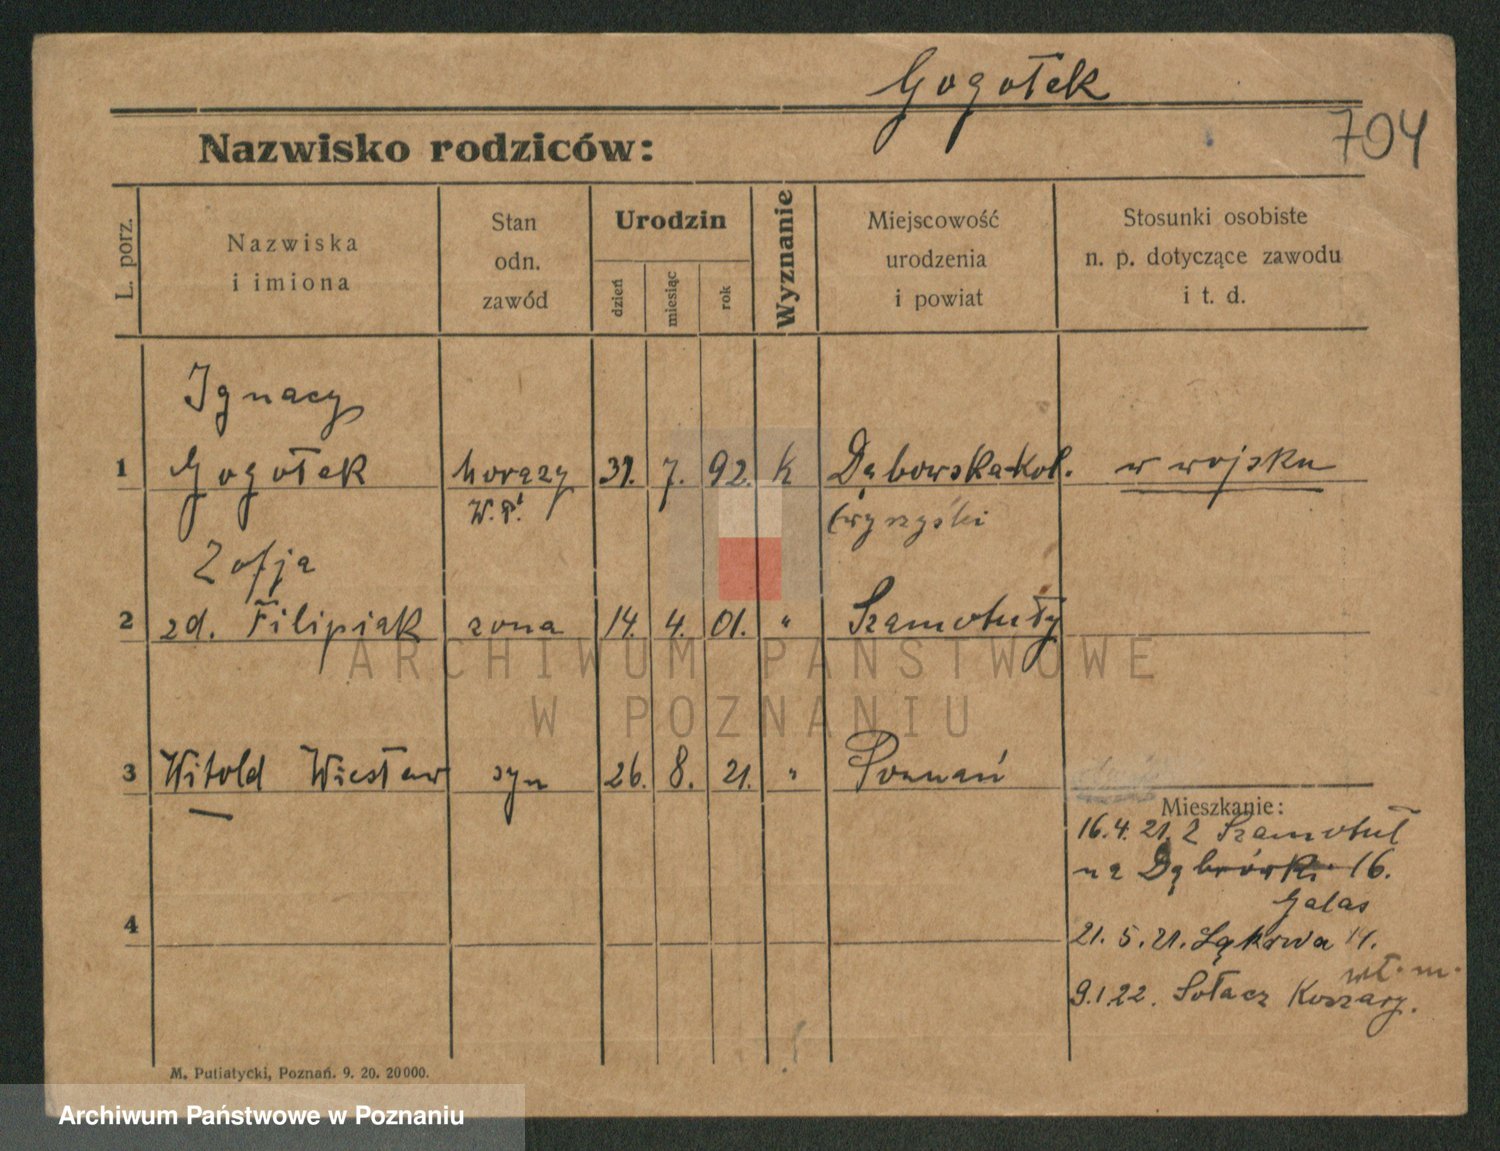 Gogołek
704
Nazwisko rodziców:
L. porz.
Nazwiska
i imiona
Stan
odn.
zawód
Urodzin
dzień
miesiąc
rok
Wyznanie
Miejscowość
urodzenia
i powiat
Stosunki osobiste
n. p. dotyczące zawodu
i t. d.
Ignacy
1 Gogołek chorąży 31. 7. 92. k Dąbowska-Kol. w wojsku
W. P.
Zofja
2 zd. Filipiak żona 14. 4. 01. " Szamotuły
ARCHIWUM PAŃSTWOWE
W POZNANIU
3 Witold Wiesław syn 26. 8. 21. " Poznań
Mieszkanie:
16.4.21. z Szamotuł
na Dąbrówki 16.
Galas
4
21. 5. 21. Łąkowa 14.
wł. m.
9.1.22. Sołacz Koszary.
M. Putiatycki, Poznań. 9. 20. 20000.
Archiwum Państwowe w Poznaniu